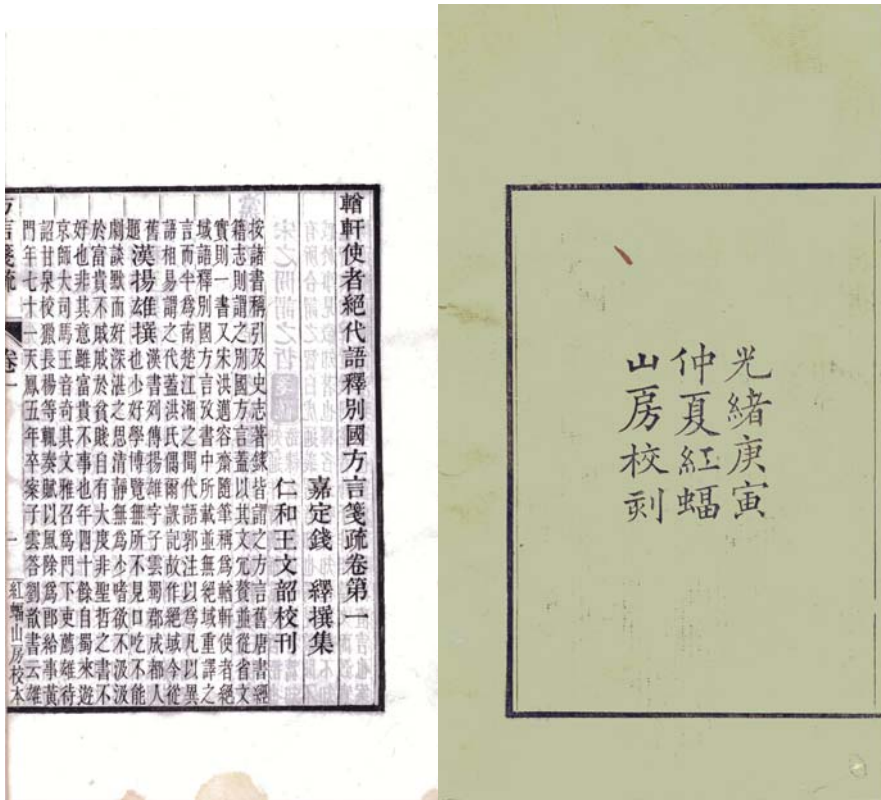 光緒庚寅
仲夏紅蝠
山房校刻
輶軒使者絕代語釋別國方言箋疏卷第一
嘉定錢 繹撰集
仁和王文韶校刊
按諸書稱引及史志著錄皆謂之方言舊唐書經
籍志則謂之別國方言蓋以其文冗贅並從省文
實則一書又宋洪邁容齋隨筆稱爲輶軒使者絕
域語釋別國方言攷書中所載並無絕域重譯之
言而半爲南楚江湘之閒代語郭注以爲凡以異
語相易謂之代蓋洪氏偶爾誤記故作絕域今從
舊題漢揚雄撰漢書列傳揚雄字子雲蜀郡成都人
也少好學博覽無所不見口吃不能
劇談默而好深湛之思清靜無爲少嗜欲不汲汲
於富貴不戚戚於貧賤自有大度非聖哲之書不
好也非其意雖富貴不事也年四十餘自蜀來遊
京師大司馬王音奇其文雅召爲門下吏薦雄待
詔甘泉校獵長楊等輒奏賦以風除爲郎給事黃
門年七十一天鳳五年卒案子雲荅劉歆書云雄
方言箋疏 卷一 一 紅蝠山房校本